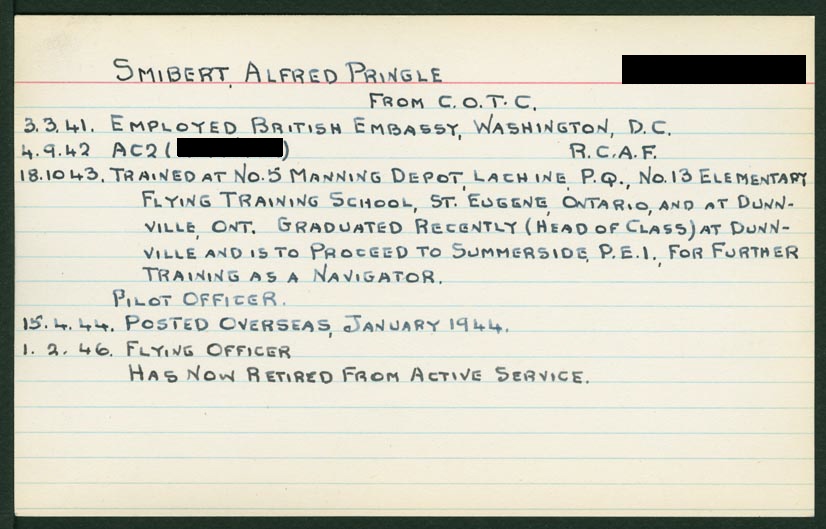 SMIBERT, ALFRED PRINGLE
FROM C.O.T.C.
3.3.41. EMPLOYED BRITISH EMBASSY, WASHINGTON, D.C.
4.9.42 AC2 ( ) R.C.A.F.
18.10.43. TRAINED AT NO.5 MANNING DEPOT, LACHINE, P.Q., NO.13 ELEMENTARY
FLYING TRAINING SCHOOL, ST. EUGENE, ONTARIO, AND AT DUNN-
VILLE, ONT. GRADUATED RECENTLY (HEAD OF CLASS) AT DUNN-
VILLE AND IS TO PROCEED TO SUMMERSIDE, P.E.I., FOR FURTHER
TRAINING AS A NAVIGATOR.
PILOT OFFICER.
15.4.44. POSTED OVERSEAS, JANUARY 1944.
1.2.46. FLYING OFFICER
HAS NOW RETIRED FROM ACTIVE SERVICE.